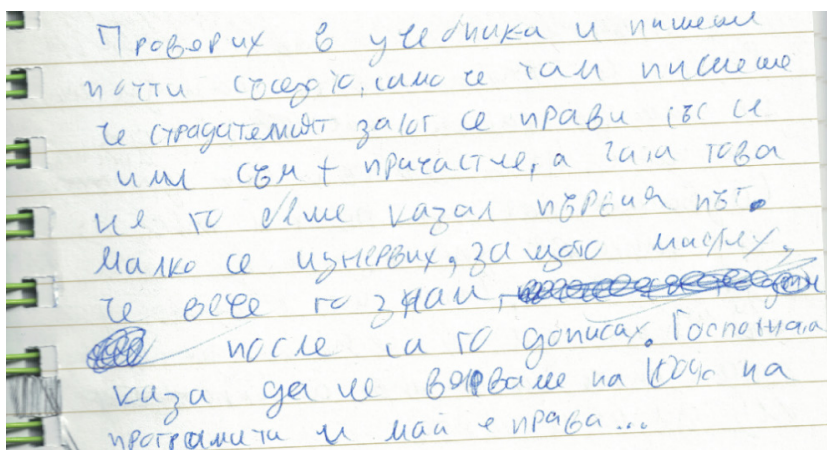 Проверих в учебника и пишеше
почти същото, само че там пишеше
че страдателният залог се прави със се
или съм + причастие, а чата това
не го беше казал първия път.
Малко се изнервих, защото мислех,
че вече го знам,
после си го дописах. Госпожата
каза да не вярваме на 100% на
програмити и май е права...